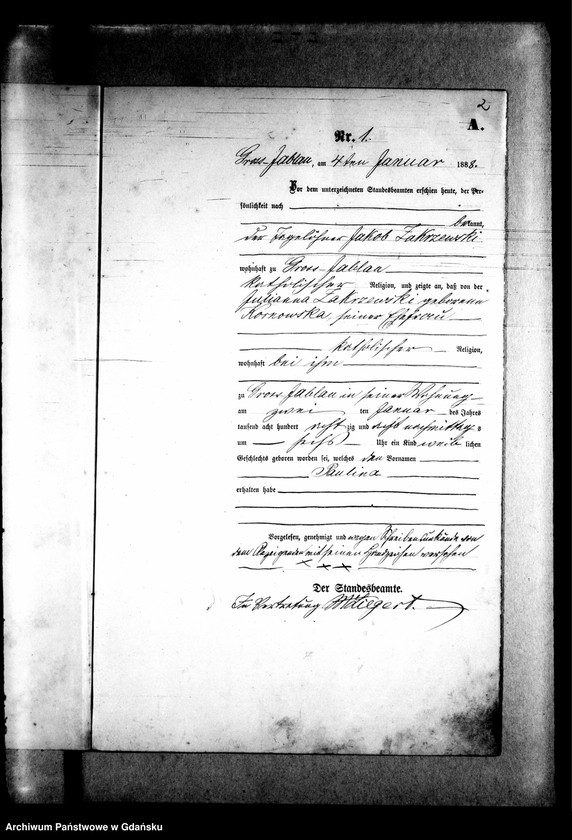 2
A.
Nr. 1.
Gross-Jablau, am 4ten Januar 1888.
Vor dem unterzeichneten Standesbeamten erschien heute, der Per-
sönlichkeit nach
bekannt,
der Tagelöhner Jakob Zakrzewski
wohnhaft zu Gross-Jablau
katholischer Religion, und zeigte an, daß von der
Julianna Zakrzewski geborene
Kornowska, seiner Ehefrau
katholischer Religion,
wohnhaft bei ihm
zu Gross Jablau in seiner Wohnung
am zwei ten Januar des Jahres
tausend acht hundert acht zig und acht nachmittags
um Uhr ein Kind weib lichen
Geschlechts geboren worden sei, welches den Vornamen
Paulina
erhalten habe
Vorgelesen, genehmigt und wegen Schreibensunkunde von
dem Anzeigenden mit seinen Handzeichen versehen
x x x
Der Standesbeamte.
In Vertretung
Archiwum Państwowe w Gdańsku